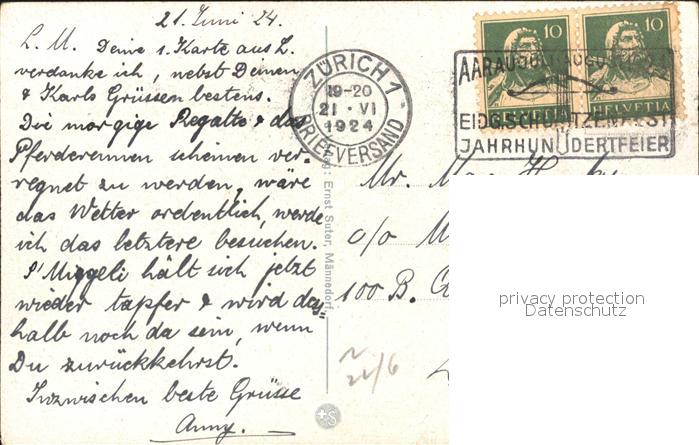 21. Juni 24.
L. M. Deine 1. Karte aus L.
verdanke ich, nebst Deinen
& Karls Grüssen bestens.
Die morgige Regatta & das
Pferderennen scheinen ver-
regnet zu werden, wäre
das Wetter ordentlich, werde
ich das letztere besuchen.
S'Miggeli hält sich jetzt
wieder tapfer & wird des-
halb noch da sein, wenn
Du zurückkehrst.
Inzwischen beste Grüsse
Anny.
ZÜRICH 1
19-20
21 · VI
1924
BRIEFVERSAND
10
10
HELVETIA
AARAU
EIDG. SCHÜTZENFEST
JAHRHUNDERTFEIER
Verlag: Ernst Suter, Männedorf
Mr.
c/o
100 B.
21/6
+S
privacy protection
Datenschutz